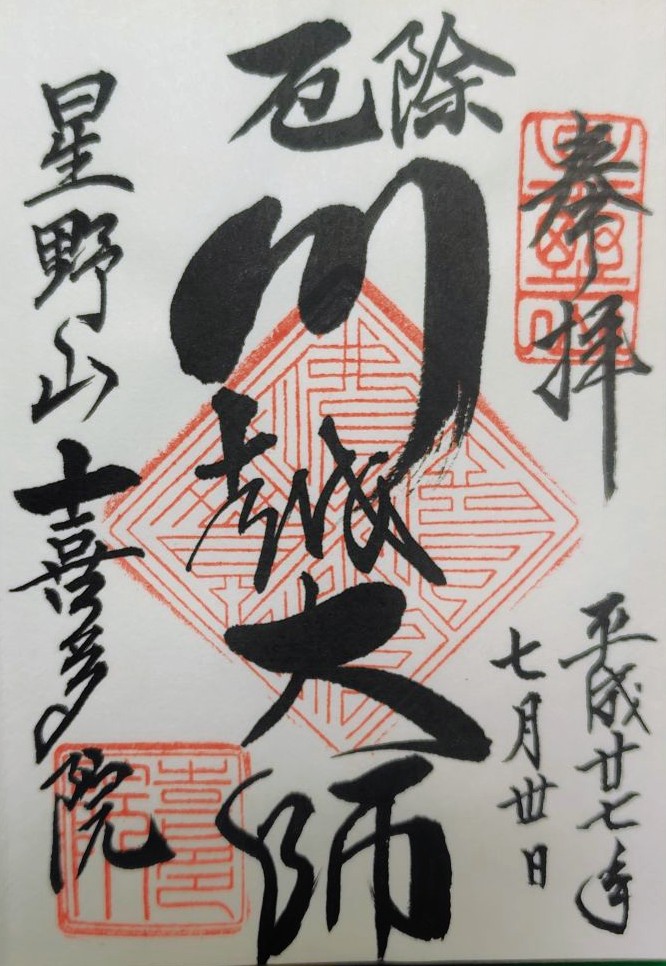 奉拝
平成廿七年
七月卅日
厄除
川越大師
星野山
喜多院
喜多院